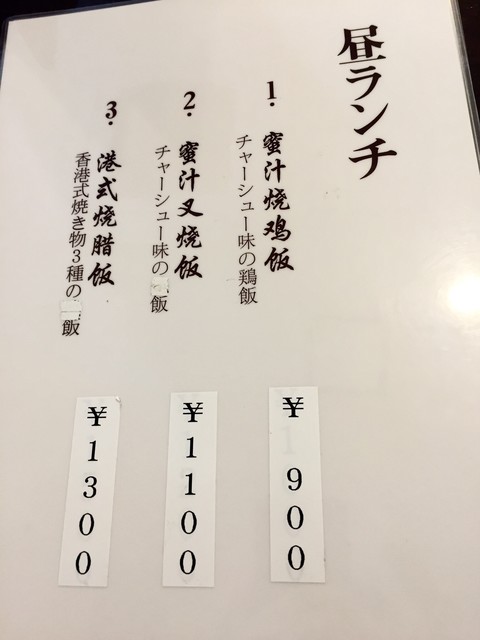 昼ランチ
1.
蜜汁烧鸡饭
チャーシュー味の鶏飯
¥900
2.
蜜汁叉烧饭
チャーシュー味の飯
¥1100
3.
港式烧腊饭
香港式焼き物3種の飯
¥1300